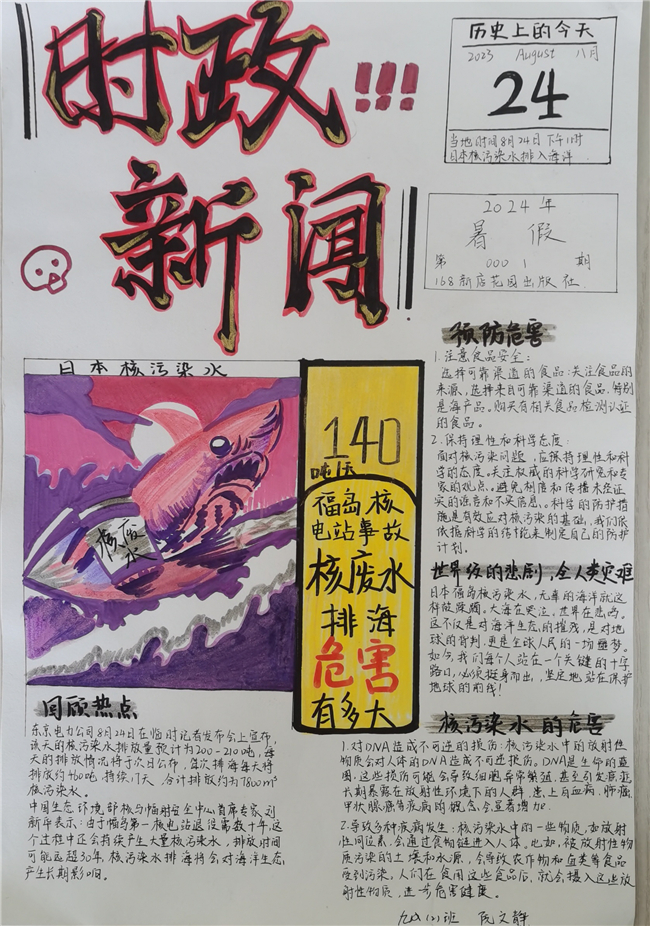 时政!!!
新闻
历史上的今天
2023 August 八月
24
当地时间8月24日下午1时
日本核污染水排入海洋.
2024年
暑假
第 0001 期
168新店花园出版社
日本核污染水
核废
水
140
吨/天
福岛核
电站事故
核废水
排海
危害
有多大
预防危害
1.注意食品安全:
选择可靠渠道的食品:关注食品的
来源,选择来自可靠渠道的食品.特别
是海产品。购买有相关食品检测认证
的食品。
2.保持理性和科学态度:
面对核污染问题,应保持理性和科
学的态度。关注权威的科学研究和专
家的观点。避免制造和传播未经证
实的谣言和不实信息。科学的防护措
施是有效应对核污染的基础,我们应
依据科学的结论来制定自己的防护
计划.
世界级的悲剧,全人类灾难
日本福岛核污染水,无辜的海洋就这
样被蹂躏。大海在哭泣,世界在悲鸣。
这不仅是对海洋生态的摧残,是对地
球的背叛.更是全球人民的一场噩梦。
如今,我们每个人站在一个关键的十字
路口,必须挺身而出,坚定地站在保护
地球的前线!
回顾热点
东京电力公司8月24日在临时记者发布会上宣布,
该天的核污染水排放量预计为200-210吨,每
天的排放情况将于次日公布,首次排海每天将
排放约460吨,持续17天,合计排放约为7800m³
核污染水。
中国生态环境部核与辐射安全中心首席专家刘
新华表示:由于福岛第一核电站退役需数十年,这
个过程中还会持续产生大量核污染水,排放时间
可能远超30年.核污染水排海将会对海洋生态
产生长期影响。
核污染水的危害
1.对DNA造成不可逆的损伤:核污染水中的放射性
物质会对人体的DNA造成不可逆损伤。DNA是生命的蓝
图,这些损伤可能会导致细胞异常繁殖,甚至引发癌症
长期暴露在放射性环境下的人群,患上白血病,肺癌,
甲状腺癌等疾病的概念,会显著增加.
2.导致多种疾病发生:核污染水中的一些物质,如放射
性同位素,会通过食物链进入人体。比如,被放射性物
质污染的土壤和水源,会导致农作物和鱼类等食品
受到污染,人们在食用这些食品后,就会摄入这些放
射性物质,进一步危害健康。
九(2)班 阮文静